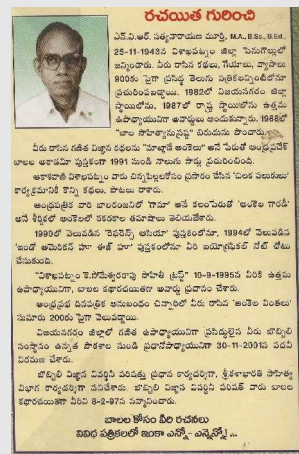 రచయిత గురించి
ఎన్.వి.ఆర్. సత్యనారాయణ మూర్తి, M.A., B.Sc., B.Ed.,
25-11-1943న విశాఖపట్నం జిల్లా పెనుగొల్లులో
జన్మించారు. వీరు రాసిన కథలు, గేయాలు, వ్యాసాలు
900కు పైగా ప్రసిద్ధ తెలుగు పత్రికలన్నింటిలోనూ
ప్రచురింపబడ్డాయి. 1982లో విజయనగరం జిల్లా
స్థాయిలోను, 1987లో రాష్ట్ర స్థాయిలోను ఉత్తమ
ఉపాధ్యాయునిగా అవార్డులు అందుకున్నారు. 1988లో
"బాల సాహిత్యానుస్రష్ట" బిరుదును పొందారు.
వీరు రాసిన గణిత విజ్ఞాన కథలను "మాట్లాడే అంకెలు" అనే పేరుతో ఆంధ్రప్రదేశ్
బాలల అకాడమీ పుస్తకంగా 1991 నుండి నాలుగు సార్లు ప్రచురించింది.
ఆకాశవాణి విశాఖపట్నం వారు చిన్నపిల్లలకోసం ప్రసారం చేసిన 'చిలక పలుకులు'
కార్యక్రమానికి కొన్ని కథలు, పాటలు రాశారు.
ఆంధ్రపత్రిక వారి బాలరంజనిలో 'గామా' అనే కలంపేరుతో 'అంకెల గారడీ'
అనే శీర్షికలో అంకెలలో రకరకాల తమాషాలు తెలియజేశారు.
1990లో వెలువడిన 'రెఫరెన్స్ ఆసియా' పుస్తకంలోనూ, 1994లో వెలువడిన
'ఇండో అమెరికన్ హూ ఈజ్ హూ' పుస్తకంలోనూ వీరి బయోగ్రఫికల్ నోట్ చోటు
చేసుకుంది.
"విశాఖపట్నం కె.సోమేశ్వరరావు సాహితీ ట్రస్ట్" 10-9-1995న వీరికి ఉత్తమ
ఉపాధ్యాయునిగా, బాలల కథారచయితగా అవార్డు ప్రదానం చేశారు.
ఆంధ్రప్రభ దినపత్రిక అనుబంధం చిన్నారిలో వీరు రాసిన 'అంకెల వింతలు'
సుమారు 200కు పైగా వెలువడ్డాయి.
విజయనగరం జిల్లాలో గణిత ఉపాధ్యాయునిగా ప్రసిద్ధులైన వీరు బొబ్బిలి
సంస్థానం ఉన్నత పాఠశాల నుండి ప్రధానోపాధ్యాయునిగా 30-11-2001న పదవీ
విరమణ చేశారు.
బొబ్బిలి విజ్ఞాన వివర్ధినీ పరిషత్తు ప్రధాన కార్యదర్శిగా, శ్రీకళాభారతి సాహిత్య
విభాగ కార్యదర్శిగా పనిచేశారు. బొబ్బిలి విజ్ఞాన వివర్ధినీ పరిషత్ వారు బాలల
కథారచయితగా వీరిని 8-2-97న సన్మానించారు.
బాలల కోసం వీరి రచనలు
వివిధ పత్రికలలో ఇంకా ఎన్నో- ఎన్నెన్నో!...